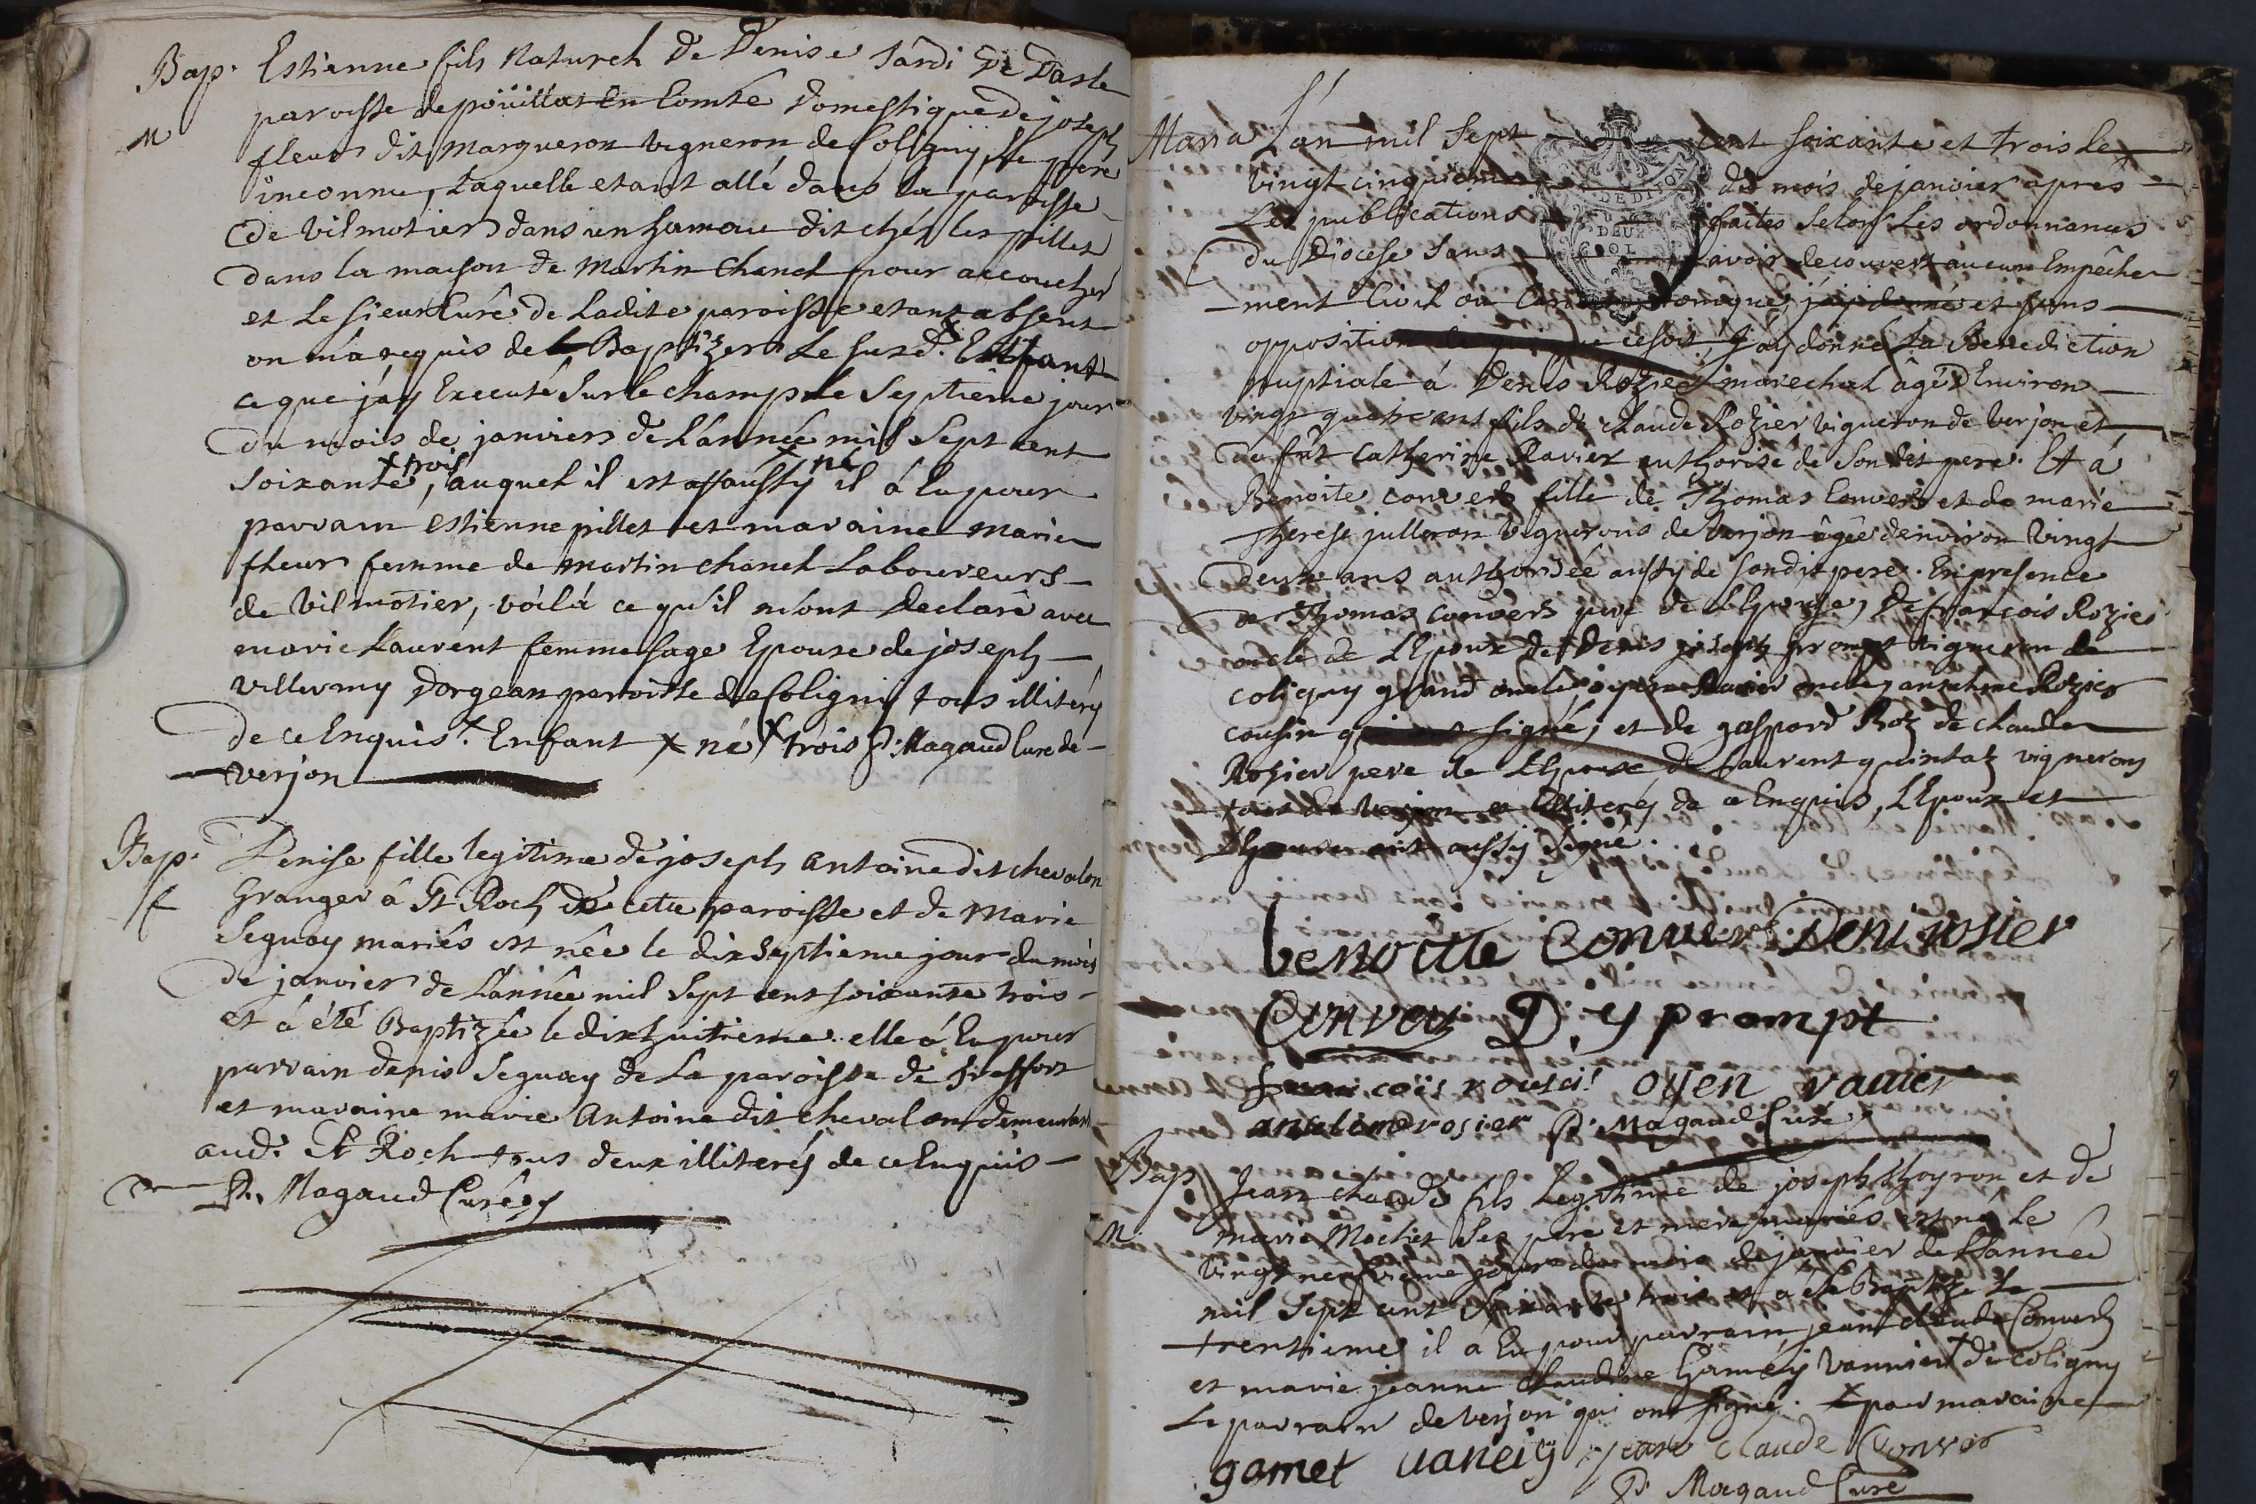 Bap. Estienne fils naturel de Denise Tardi de Dasle
paroisse de poüillat En Comté domestique de joseph
M
fleur dit margueron vigneron de Coligny, le pere
inconnu, Laquelle etant allé dans la paroisse
de vilmotier dans un hamau dit chés les pillet
dans la maison de Martin Chanel pour accoucher
et Le sieur Curé de Ladite paroisse etant absent
on m'a requis de Baptizer Le susd. Enfant
ce que j'ay Executé sur le champ le Septieme jour
du mois de janvier de L'année mil Sept cent
Soixante + trois, auquel il est aussy + né il á Eu pour
parrain estienne pillet et maraine marie
fleur femme de martin chanel Laboureurs
de vilmotier, voila ce qu'il m'ont declaré avec
marie Laurent femme sage Epouse de joseph
villermy d'orgean paroisse de Coligny tous illiterés
de ce Enquis. + Enfant + né + trois P. Magaud Curé de
verjon
Bap. Denise fille legitime de joseph antoine dit chevalon
f
Granger á St Roch de cette paroisse et de Marie
Seguay mariés est née le dix septieme jour du mois
de janvier de L'année mil Sept cent soixante trois
et á été Baptizée le dixhuitieme. elle á Eu pour
parrain denis Seguay de La paroisse de Treffort
et maraine marie Antoine dit chevalon demeurant
aud. St Roch tous deux illiterés de ce Enquis
P. Magaud Curé
Maria L'an mil Sept cent soixante et trois Le
vingt cinquieme du mois de janvier apres
Les publications faites selon Les ordonnances
DE DIJON
DEUX
SOL
du Diocese sans avoir decouvert aucun Empêche
ment Civil ou Canonique, j'ay donné et sans
opposition de qui que ce soit j'ay donné La Benediction
nuptiale á Denis Rozier marechal âgé d'Environ
vingt quatre ans fils de claude Rozier vigneron de verjon et
de fût Catherine Ravier authorisé de Son dit pere. Et á
Benoite convert fille de Thomas Convers et de marie
Therese julleron vignerons de verjon âgée denviron vingt
deux ans authorisée aussy de son dit pere. En presence
de Thomas convers pere de L'Epouse, de françois Rozier
oncle de L'Epoux de Denis prompt vigneron de
coligny grand oncle, oyen Ravier oncle, anselme Rozier
cousin qui ont signé, et de gaspard Roz de claude
Rozier pere de L'Epoux de Laurent quintat vignerons
tous de verjon et illiterés de ce Enquis, L'Epoux et
L'Epouse ont aussy signé.
benoitte Conver Deni rosier
Convers D. y prompt
francois rousei oyen ravier
anselme rosier P. Magaud Curé
Bap. Jean claude fils Legitime de joseph Thoyron et de
M.
marie Mochet Ses pere et mere mariés est né Le
vingt neufvieme jour du mois de janvier de L'année
mil Sept cent soixante trois et a été Baptizé Le
trentieme il a Eu pour parrain jean claude Convers
et marie jeanne claudine Gamey vannier + de coligny
Le parrain de verjon qui ont signé. + pour maraine
gamet vaneiy jean claude Convers
P. Magaud Curé